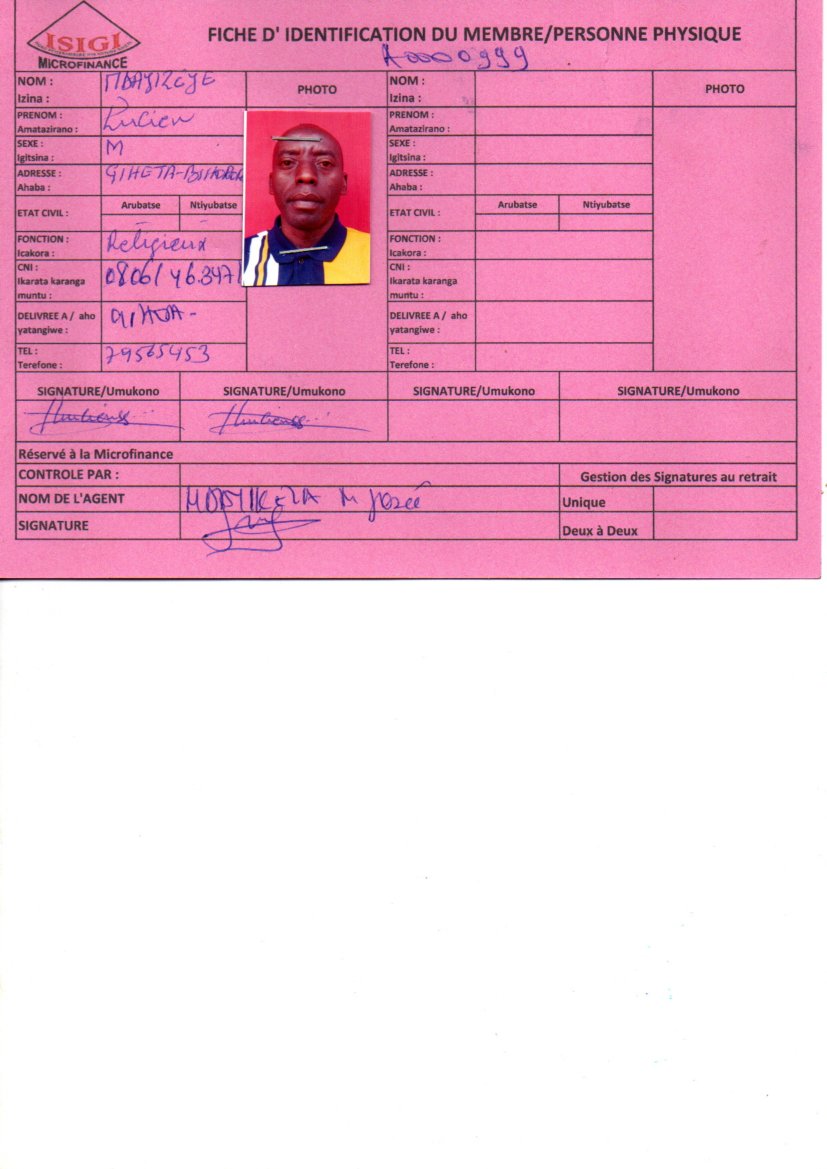 ISIGI
MICROFINANCE
FICHE D' IDENTIFICATION DU MEMBRE/PERSONNE PHYSIQUE
A0000999
NOM :
Izina :
PHOTO
NOM :
Izina :
PHOTO
PRENOM :
Amatazirano :
Lucien
PRENOM :
Amatazirano :
SEXE :
Igitsina :
M
SEXE :
Igitsina :
ADRESSE :
Ahaba :
GIHETA-
ADRESSE :
Ahaba :
ETAT CIVIL :
Arubatse
Ntiyubatse
ETAT CIVIL :
Arubatse
Ntiyubatse
FONCTION :
Icakora :
Religieux
FONCTION :
Icakora :
CNI :
Ikarata karanga
muntu :
CNI :
Ikarata karanga
muntu :
DELIVREE A / aho
yatangiwe :
DELIVREE A / aho
yatangiwe :
TEL :
Terefone :
79565453
TEL :
Terefone :
SIGNATURE/Umukono
SIGNATURE/Umukono
SIGNATURE/Umukono
SIGNATURE/Umukono
Réservé à la Microfinance
CONTROLE PAR :
Gestion des Signatures au retrait
NOM DE L'AGENT
M José
Unique
SIGNATURE
Deux à Deux